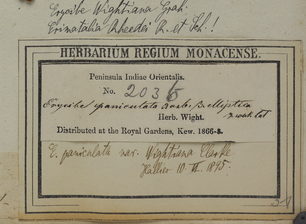 Erycibe Wightiana Grah.
Erimatalia Rheedei R. et Sch.!
HERBARIUM REGIUM MONACENSE.
Peninsula Indiae Orientalis.
No. 2036
Erycibe paniculata Roxb.
Herb. Wight.
Distributed at the Royal Gardens, Kew. 1866-8.
E. paniculata var. Wightiana Clarke
Hallier